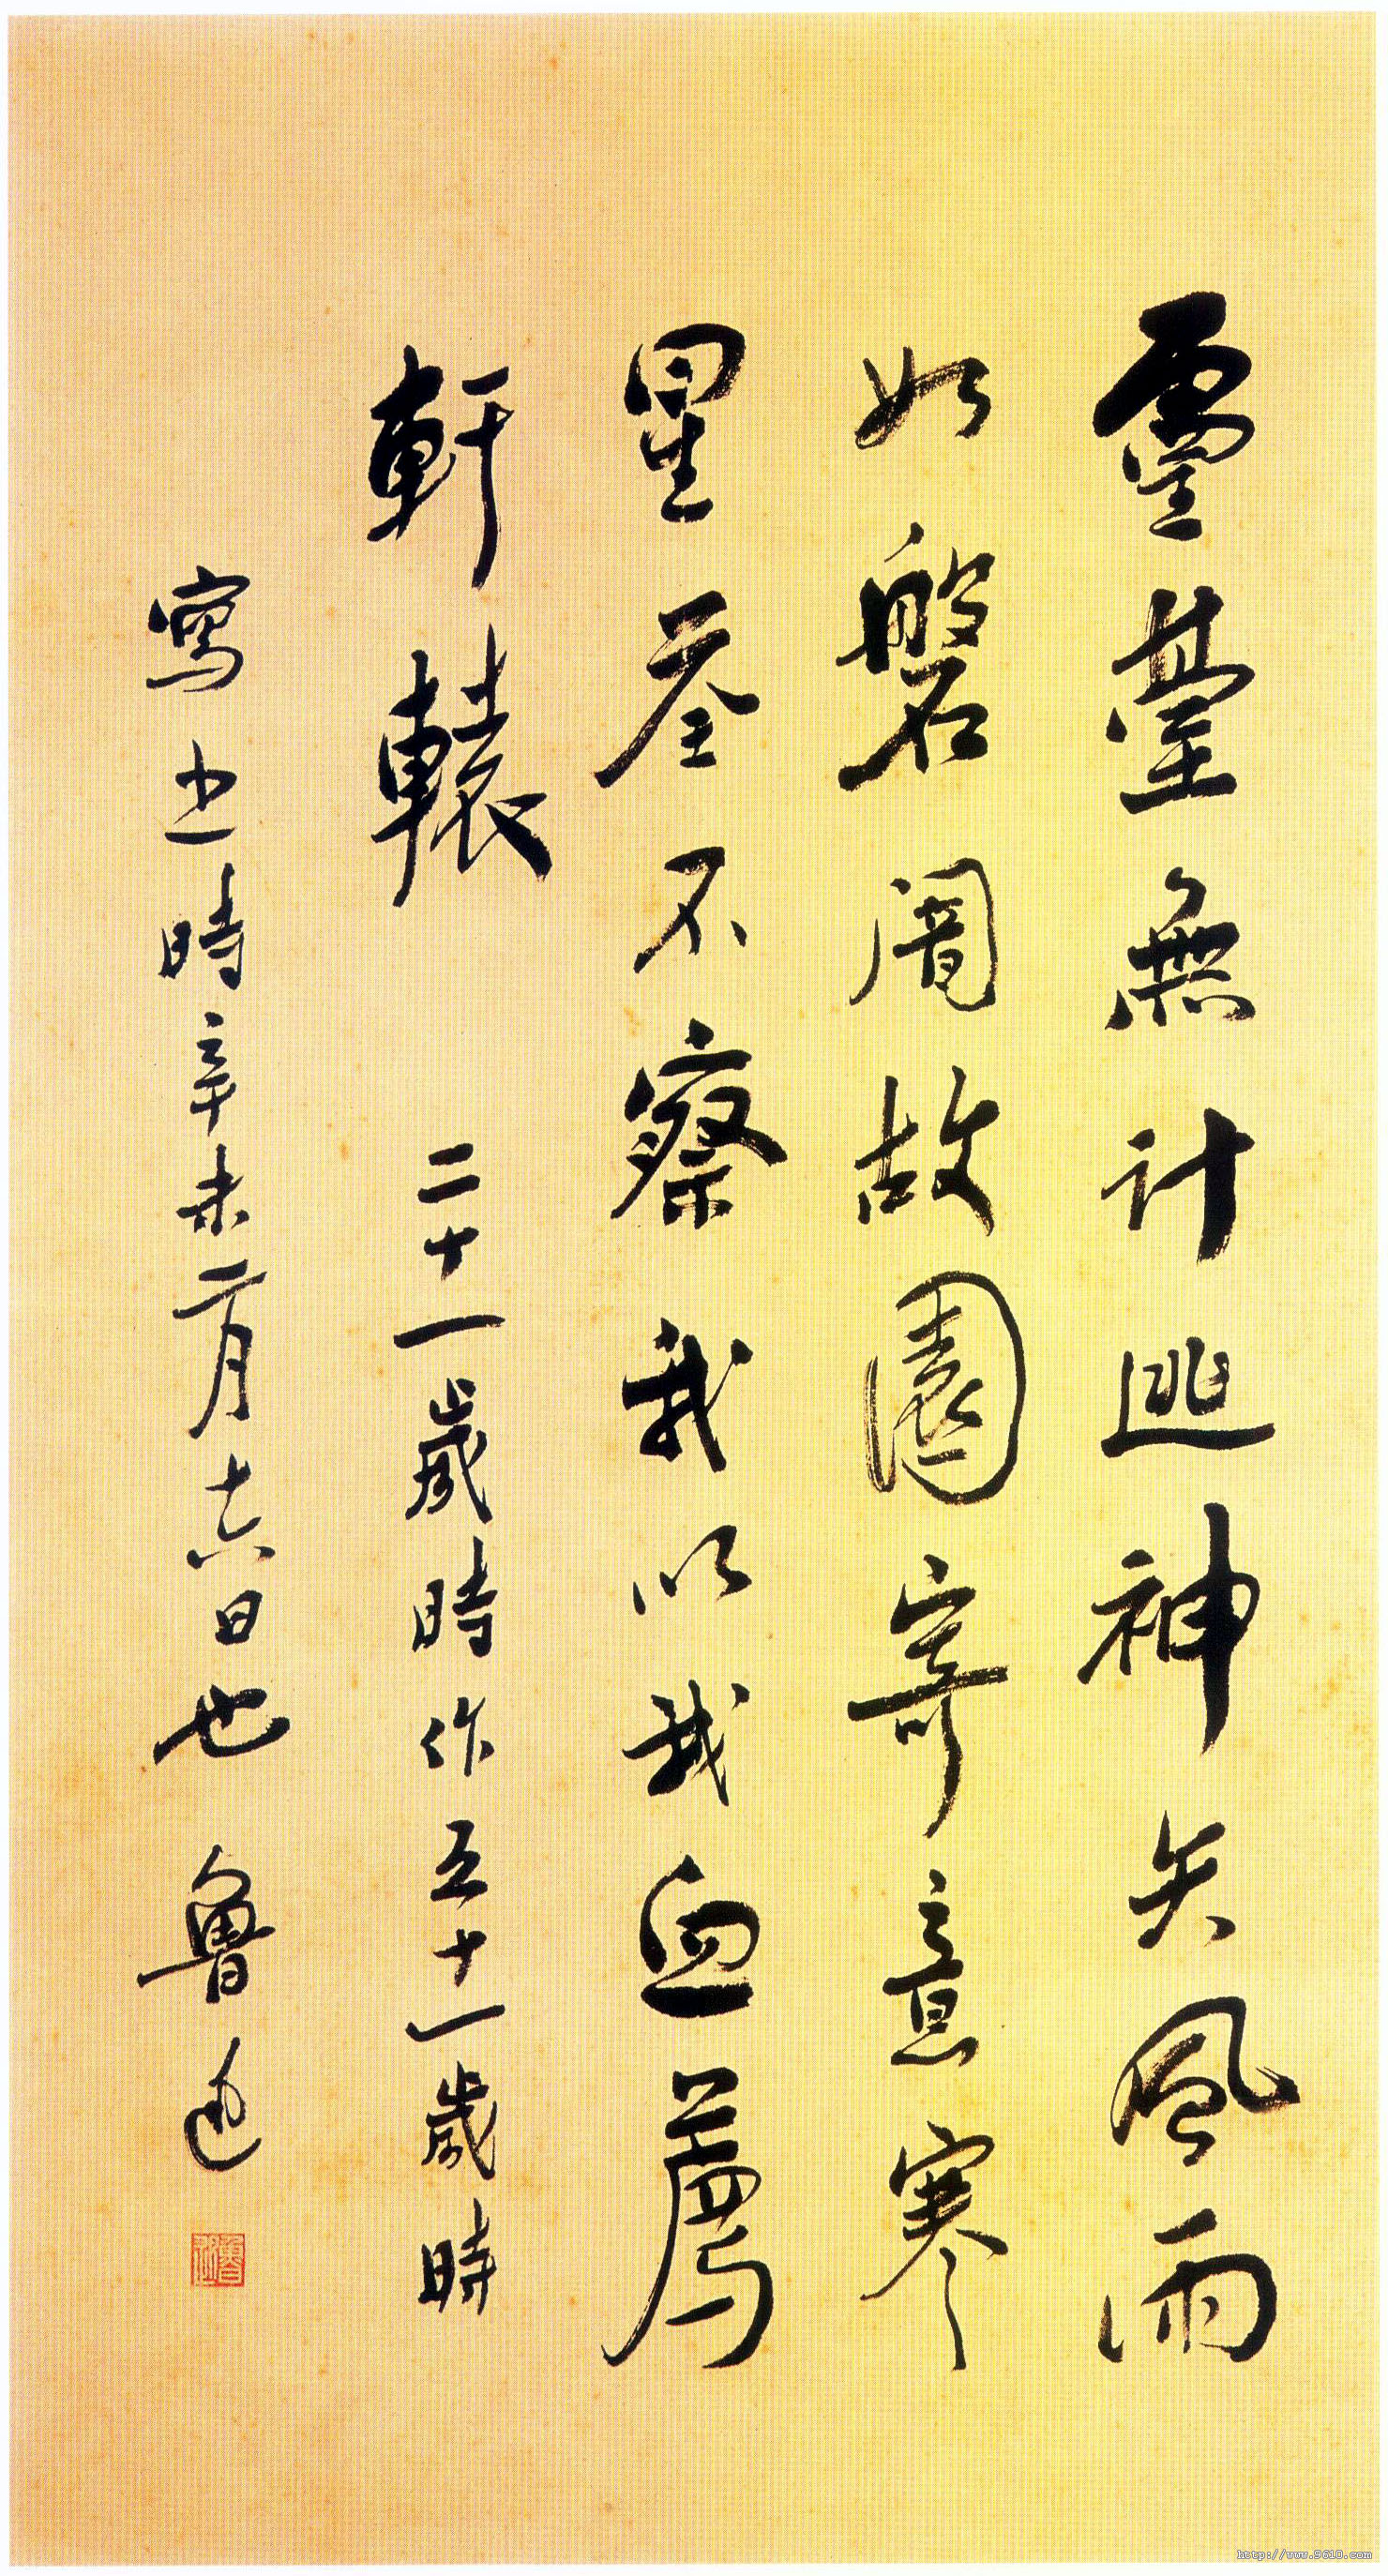 靈臺無計逃神矢風雨
如磐闇故園寄意寒
星荃不察我以我血薦
軒轅 二十一歲時作五十一歲時
寫之時辛未二月十六日也 魯迅
http://www.9610.com